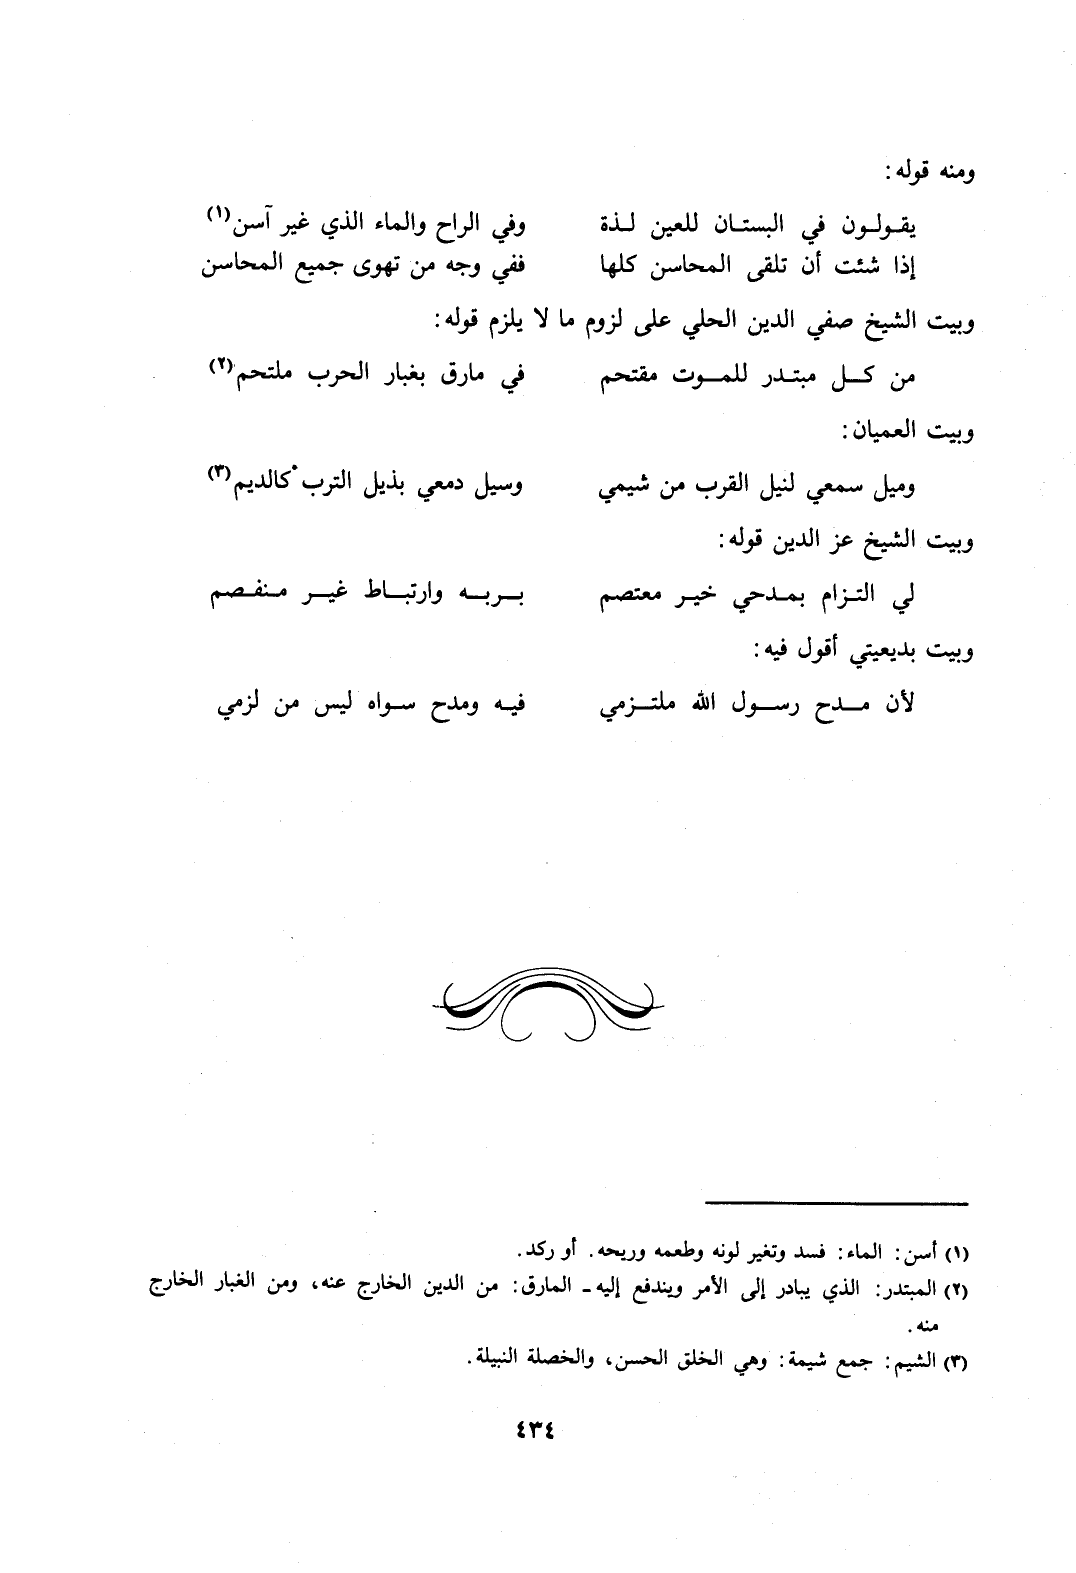 ومنه قوله:
يقـولـون في البستـان للعين لـذة وفي الراح والماء الذي غير آسن(١)
إذا شئت أن تلقى المحاسن كلها ففي وجه من تهوى جميع المحاسن
وبيت الشيخ صفي الدين الحلي على لزوم ما لا يلزم قوله:
من كــل مبتـدر للمــوت مقتحم في مارق بغبار الحرب ملتحم(٢)
وبيت العميان:
وميل سمعي لنيل القرب من شيمي وسيل دمعي بذيل الترب كالديم(٣)
وبيت الشيخ عز الدين قوله:
لي التـزام بمـدحي خيـر معتصم بــربــه وارتبــاط غيــر مـنفـصم
وبيت بديعيتي أقول فيه:
لأن مــدح رســول الله ملتــزمي فيـه ومدح سـواه ليس من لزمي
(١) أسن: الماء: فسد وتغير لونه وطعمه وريحه. أو ركد.
(٢) المبتدر: الذي يبادر إلى الأمر ويندفع إليه ـ المارق: من الدين الخارج عنه، ومن الغبار الخارج
منه.
(٣) الشيم: جمع شيمة: وهي الخلق الحسن، والخصلة النبيلة.
٤٣٤